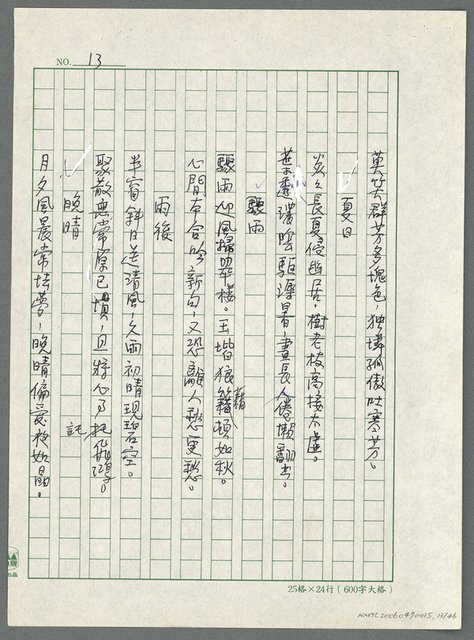 NO. 13
莫笑群芳多塊色,独憐孤傲吐寒芳。
夏日
炎々長夏侵幽居,樹老枝高接太虛。
濃陰驅溽暑,晝長人倦懶翻書。
驟雨
驟雨迎風掃翠樓。玉堦狼籍頓如秋。
藉
心閒本合吟新句,又恐騷人愁更愁。
雨後
半窗斜日送清風,久雨初晴現碧空。
聚散無常原已慣,且將心事托飛鴻。
託
晚晴
月夕風晨常怯夢,晚晴偏愛夜如晶。
25格×24行(600字大格)
NMTL20060490015_13/46